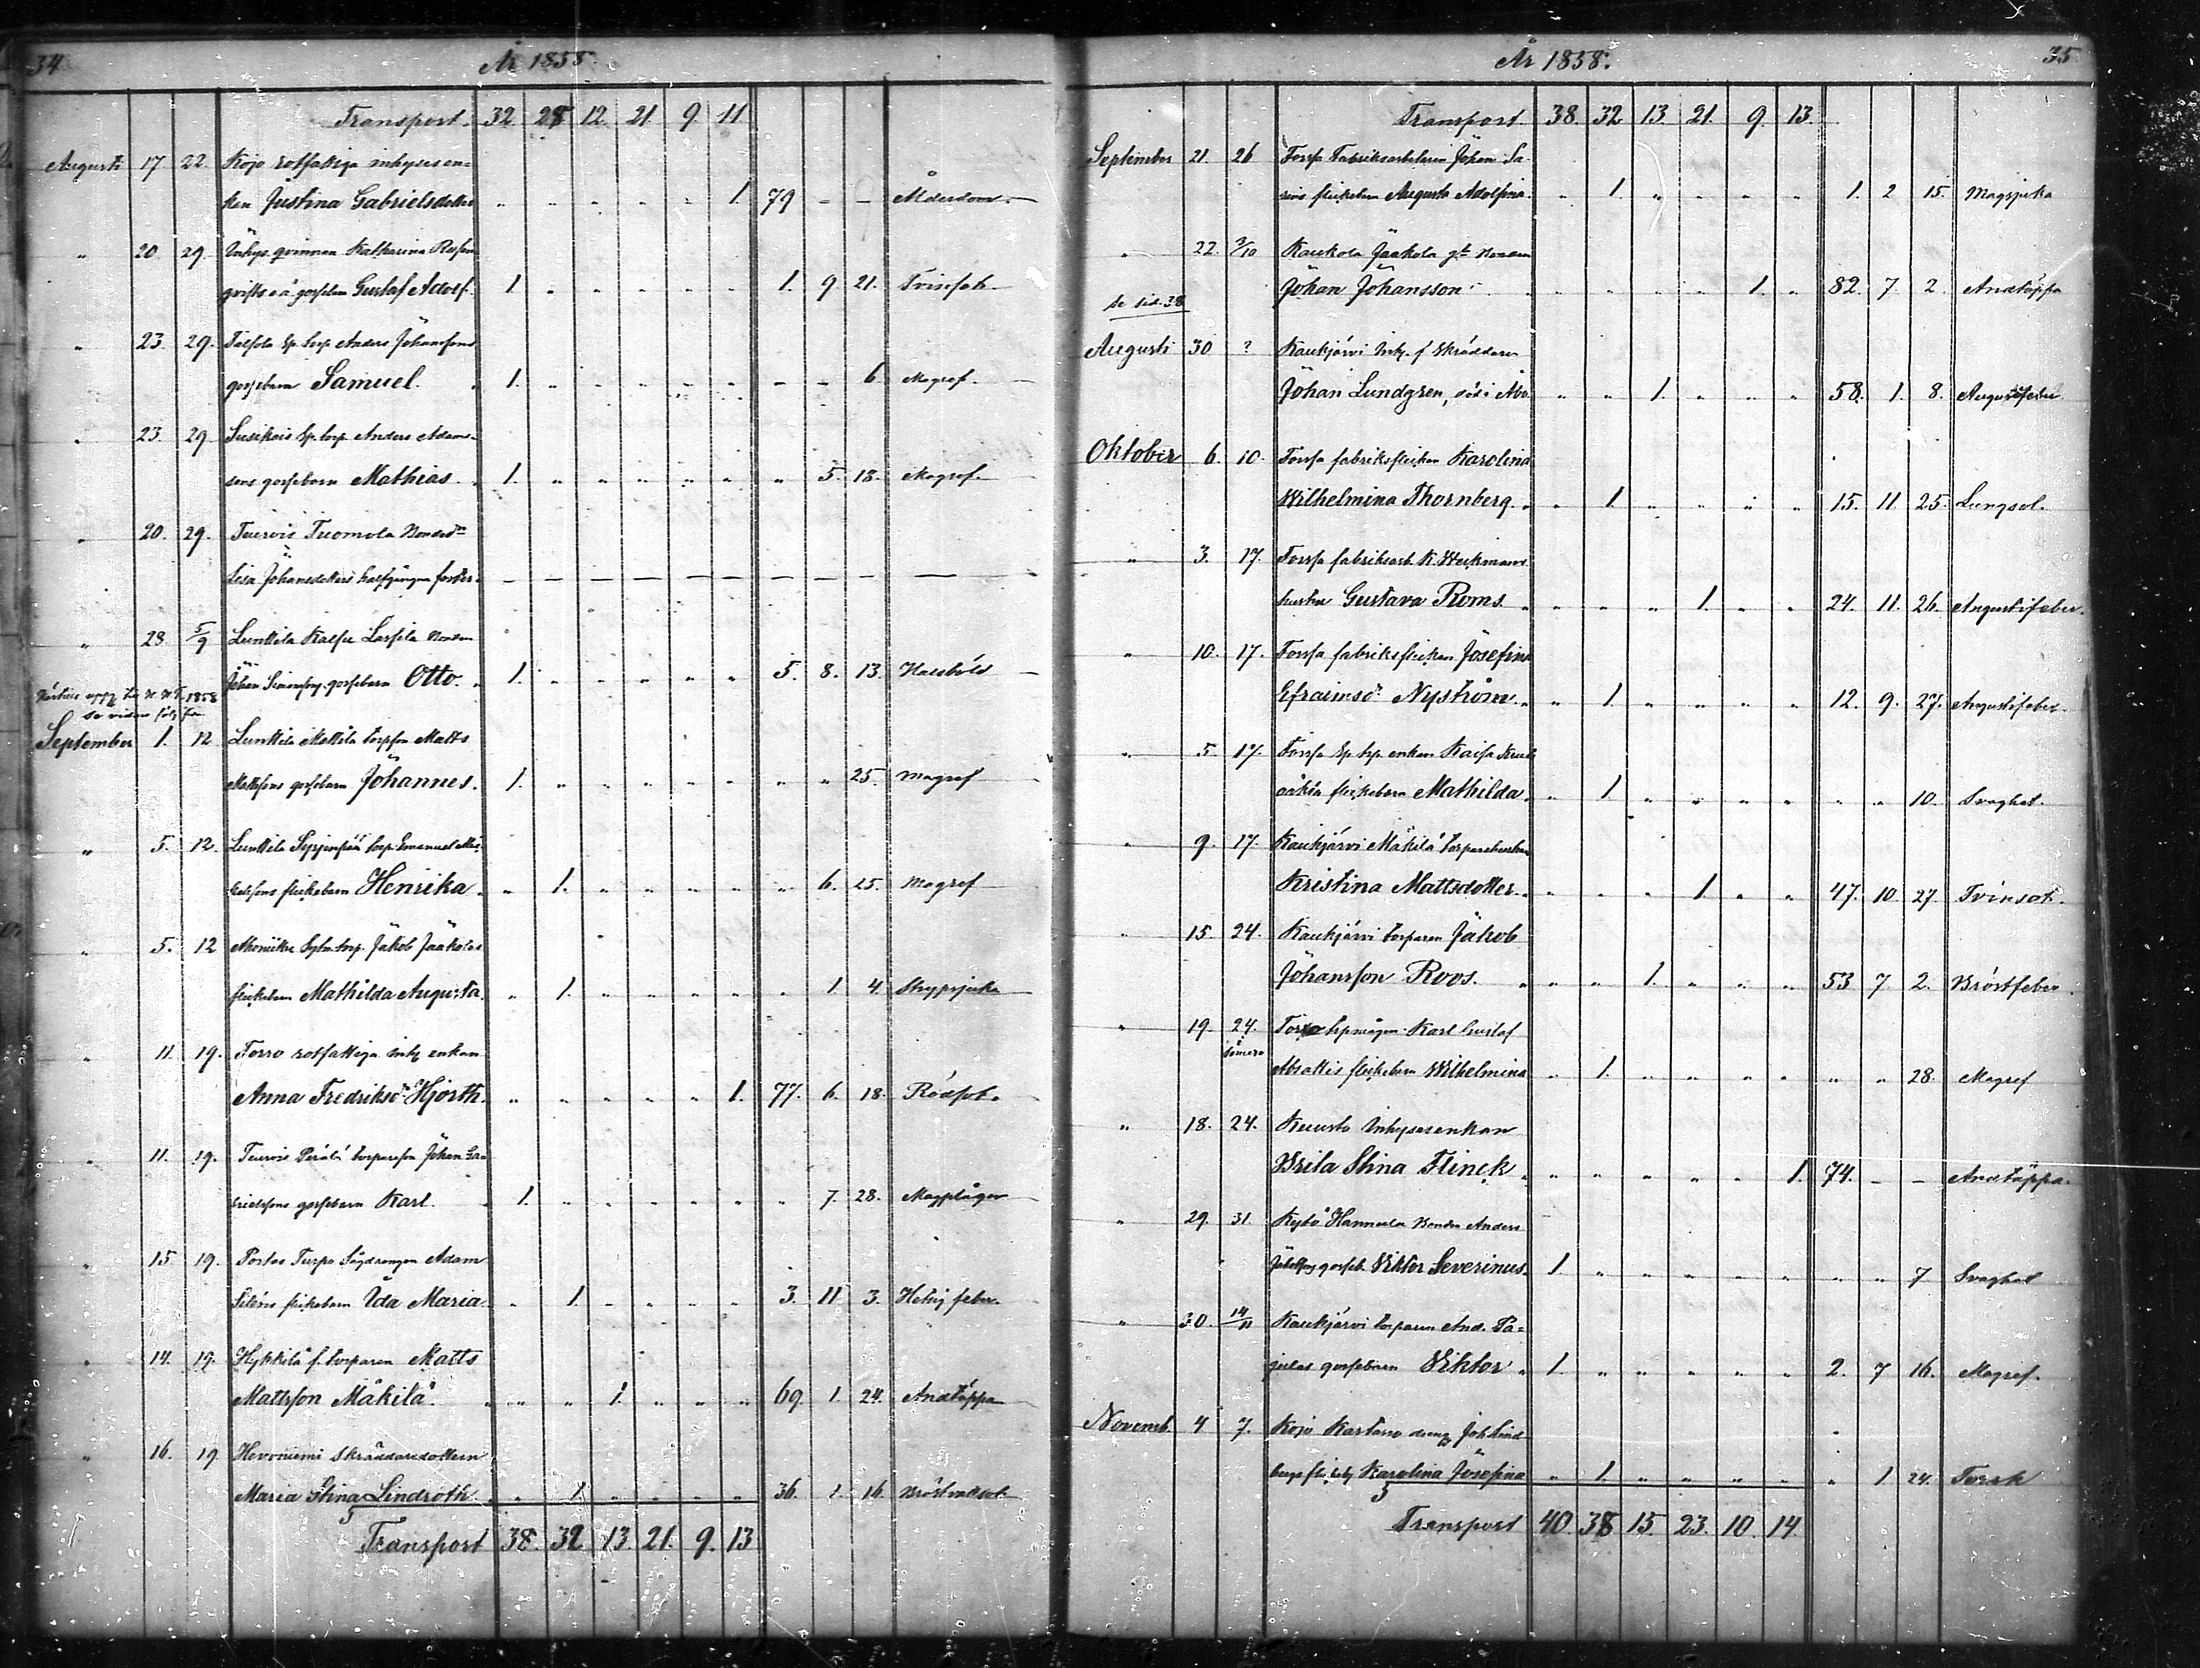 34
År 1858.
Transport. 32. 28 12. 21. 9. 11
Augusti 17 22. Kojo rotfattiga inhysesen-
kan Justina Gabrielsdotter " " " " " " 1. 79 - - Ålderdom.
" 20. 29. Inhys. qvinnan Katharina
gossebarn Gustaf Adolf. 1. " " " " " 1. 9 21. Tvinsot.
" 23. 29. torp Anders Johanssons
gossebarn Samuel. 1. " " " " " - - 6. Magref.
" 23. 29. Susikais Sp. torp. Anders Adams-
sons gossebarn Mathias. 1. " " " " " " 5. 18. Magref.
" 20. 29. Teuvois Tuomola Bonded:
Lisa Johansdotters halfgångna foster. — — — — — — — — — —
" 28. 5/9 Lunttila Kalfu Lassila Bonden
Johan gossebarn Otto. 1. " " " " " 5. 8. 13. Halsböld
1858
September 1. 12 Lunttila Mattila torpson Matts
Mattssons gossebarn Johannes. 1. " " " " " " " 25. Magref
" 5. 12. Lunttila torp. Emanuel
flickebarn Henrika. " 1. " " " " " 6. 25. Magref
" 5. 12 torp. Jakob Jaakolas
flickebarn Mathilda Augusta. " 1. " " " " " 1. 4. Strypsjuka
" 11. 19. Torro rotfattiga inh. enkan
Anna Fredriksd:r Hjorth. " " " " " 1. 77. 6. 18. Rödsot.
" 11. 19. Teuvois Perälä torpareson Johan
gossebarn Karl. 1. " " " " " " 7. 28. Magplågor
" 15 19. Portas Turpo Sågdrengen Adam
Siléns flickebarn Ida Maria. " 1. " " " " 3. 11. 3. Hetsig feber.
" 14. 19. Hykkilä f. torparen Matts
Mattsson Mäkilä. " " 1. " " " 69. 1. 24. Andtäppa
" 16. 19 Hevoniemi Skräddaredottern
Maria Stina Lindroth " 1. " " " " 36. 1. 16. Bröstvattsot.
Transport 38. 32. 13. 21. 9. 13
35
År 1858.
Transport 38. 32 13. 21. 9. 13.
September 21. 26 Forssa Fabriksarbetaren Johan Sa-
flickebarn Augusta Adolfina. " 1. " " " " 1. 2 15. Magsjuka
" 22. 3/10 Kaukola Jaakola g:l Bonden
Johan Johansson. " " " " 1. " 82. 7. 2. Andtäppa
se sid. 38
Augusti 30 ? Kaukjärvi Inh. f Skräddaren
Johan Lundgren, död i Åbo. " " 1. " " " 58. 1. 8. Augustifeber
Oktober 6. 10. Forssa fabriksflickan Karolina
Wilhelmina Thornberg. " 1. " " " " 15. 11 25. Lungsot.
" 3. 17. Forssa fabriksarb. K. Weckmans
hustru Gustava Roms. " " " 1. " " 24. 11. 26. Augustifeber.
" 10. 17. Forssa fabriksflickan Josefina
Efraimsd:r Nyström. " 1. " " " " 12. 9. 27. Augustifeber.
" 5. 17. Forssa Sp. torp. enkan Kaisa
flickebarn Mathilda. " 1. " " " " " " 10. Svaghet.
" 9. 17. Kaukjärvi Mäkilä torparehustrun
Kristina Mattsdotter. " " " 1. " " 47. 10. 27 Tvinsot.
" 15. 24. Kaukjärvi torparen Jakob
Johansson Roos. " " 1. " " " 53 7 2. Bröstfeber.
" 19. 24. Torro Karl Gustaf
Somero
flickebarn Wilhelmina " 1. " " " " " " 28. Magref
" 18. 24. Kuusto Inhysesenkan
Brita Stina Flinck. " " " " " 1. 74. - - Andtäppa.
" 29. 31. Kybö Hannula Bonden Anders
gosseb. Viktor Severinus. 1. " " " " " " " 7 Svaghet
" 30. 14/11 Kaukjärvi torparen And. Pa-
julas gossebarn Viktor. 1. " " " " " 2. 7 16. Magref.
Novemb. 4 7. Kojo Kartano dreng Joh Lind-
bergs Karolina Josefina " 1 " " " " " 1. 24. Torsk
Transport 40 38 15. 23. 10. 14.